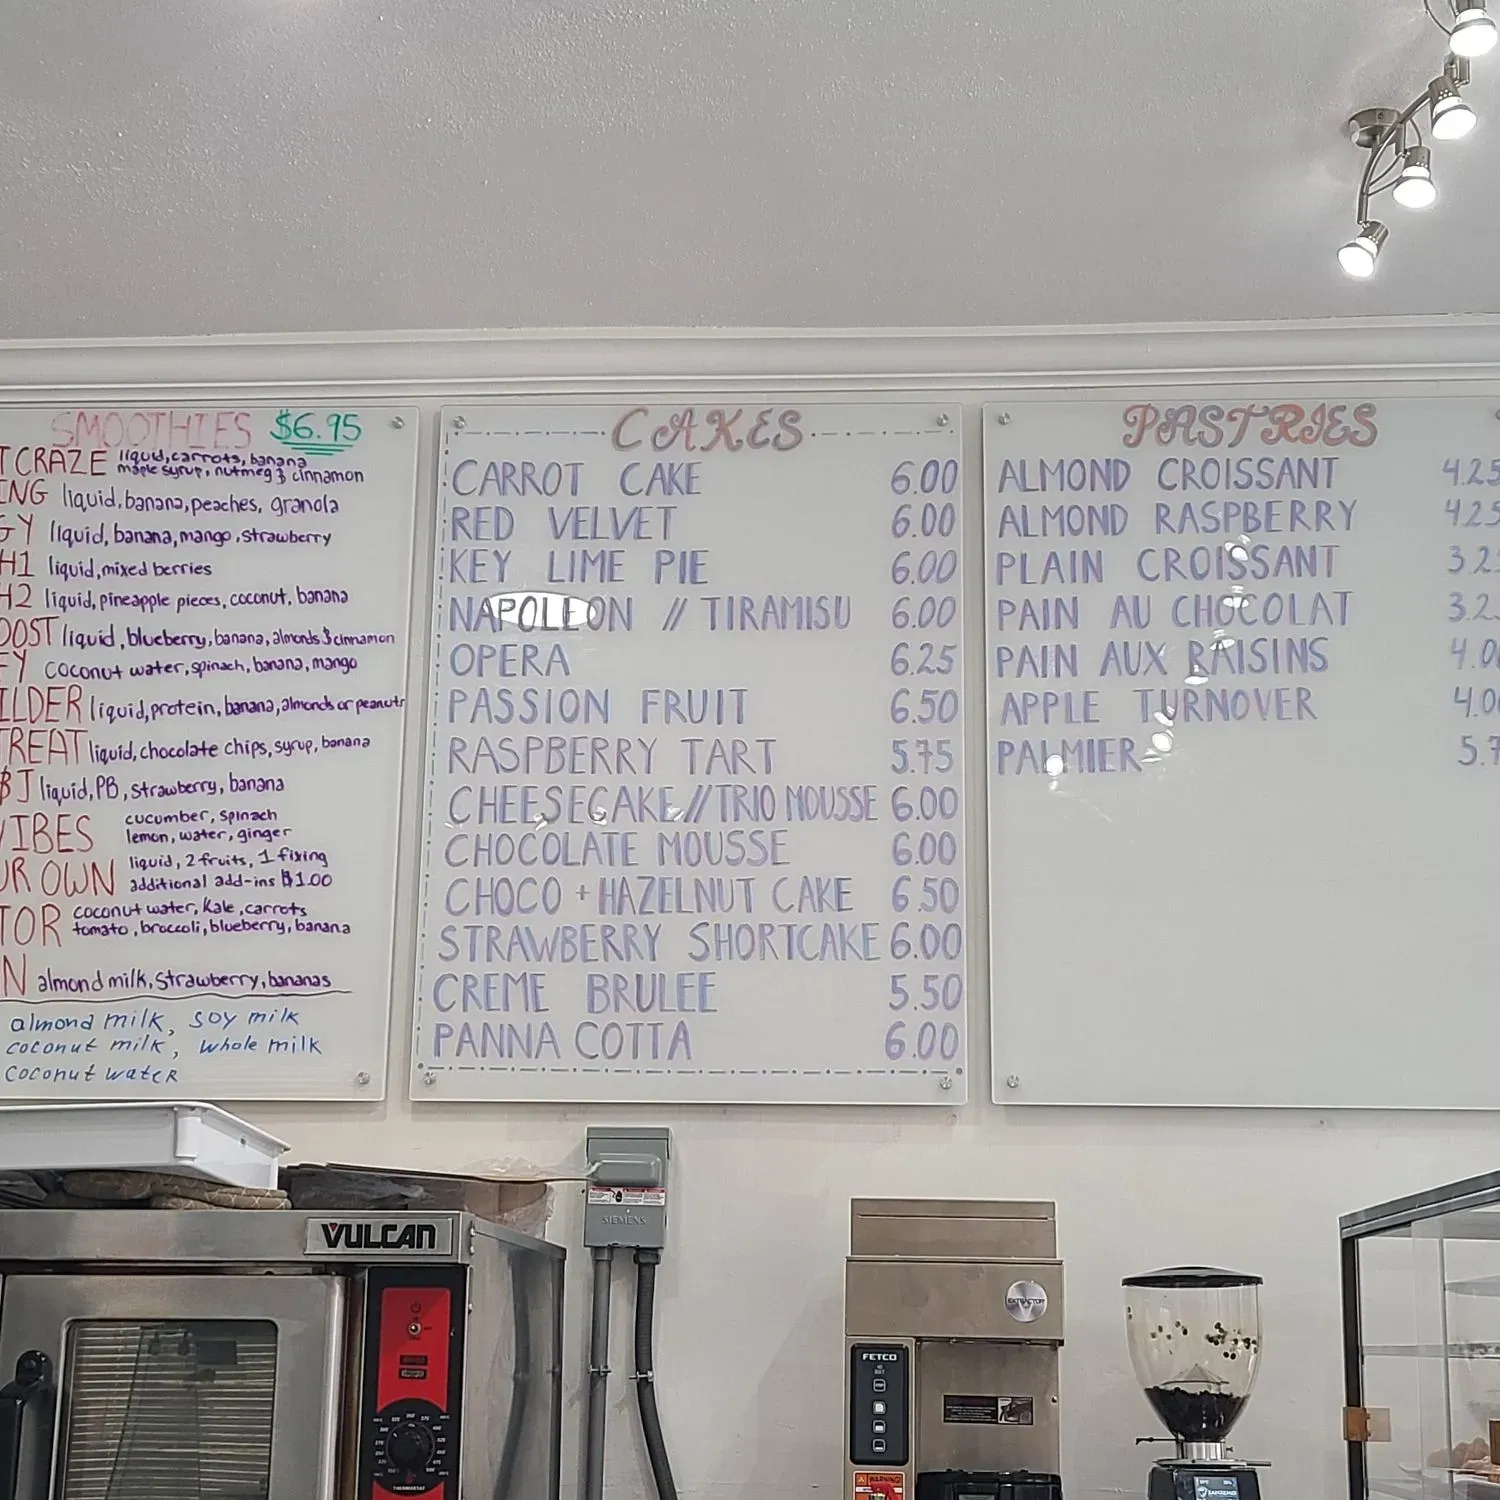 SMOOTHIES $6.95
T CRAZE liquid, carrots, banana
maple syrup, nutmeg $ cinnamon
ING liquid, banana, peaches, granola
GY liquid, banana, mango, strawberry
H1 liquid, mixed berries
H2 liquid, pineapple pieces, coconut, banana
OOST liquid, blueberry, banana, almonds $ cinnamon
FY coconut water, spinach, banana, mango
ILDER liquid, protein, banana, almonds or peanuts
TREAT liquid, chocolate chips, syrup, banana
$J liquid, PB, strawberry, banana
VIBES cucumber, spinach
lemon, water, ginger
UR OWN liquid, 2 fruits, 1 fixing
additional add-ins $1.00
TOR coconut water, kale, carrots
tomato, broccoli, blueberry, banana
N almond milk, strawberry, bananas
almond milk, soy milk
coconut milk, whole milk
coconut water
CAKES
CARROT CAKE 6.00
RED VELVET 6.00
KEY LIME PIE 6.00
NAPOLEON // TIRAMISU 6.00
OPERA 6.25
PASSION FRUIT 6.50
RASPBERRY TART 5.75
CHEESECAKE // TRIO MOUSSE 6.00
CHOCOLATE MOUSSE 6.00
CHOCO + HAZELNUT CAKE 6.50
STRAWBERRY SHORTCAKE 6.00
CREME BRULEE 5.50
PANNA COTTA 6.00
PASTRIES
ALMOND CROISSANT 4.25
ALMOND RASPBERRY 4.25
PLAIN CROISSANT 3.2
PAIN AU CHOCOLAT 3.2
PAIN AUX RAISINS 4.0
APPLE TURNOVER 4.0
PALMIER 5.7
VULCAN
SIEMENS
EXTRACTOR
FETCO
WARNING